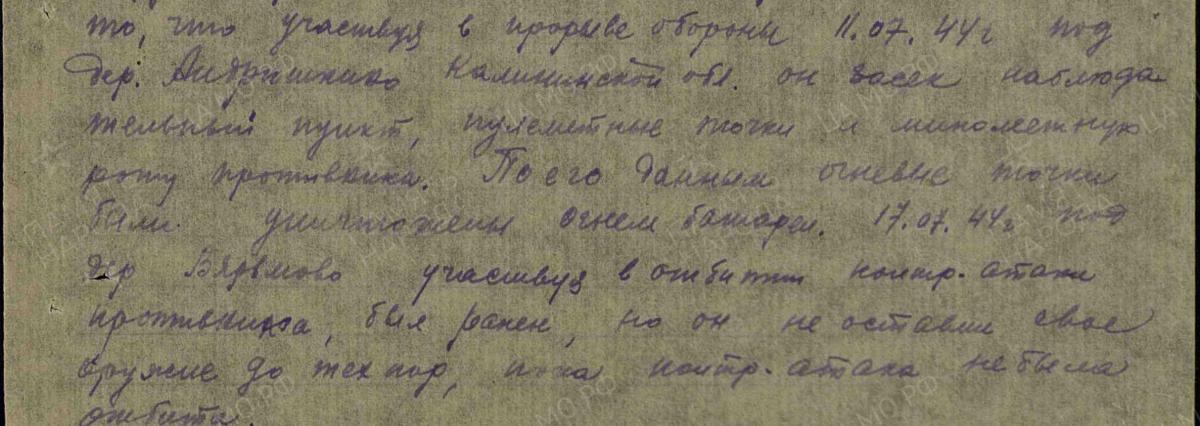 то, что участвуя в прорыве обороны 11.07.44г под
дер. Калининской обл. он засек наблюда
тельный пункт, пулеметные точки и минометную
роту противника. По его данным огневые точки
были уничтожены огнем батареи. 17.07.44г под
дер Вязьмово участвуя в отбитии контр. атаки
противника, был ранен, но он не оставил свое
оружие до тех пор, пока контр. атака не была
отбита.